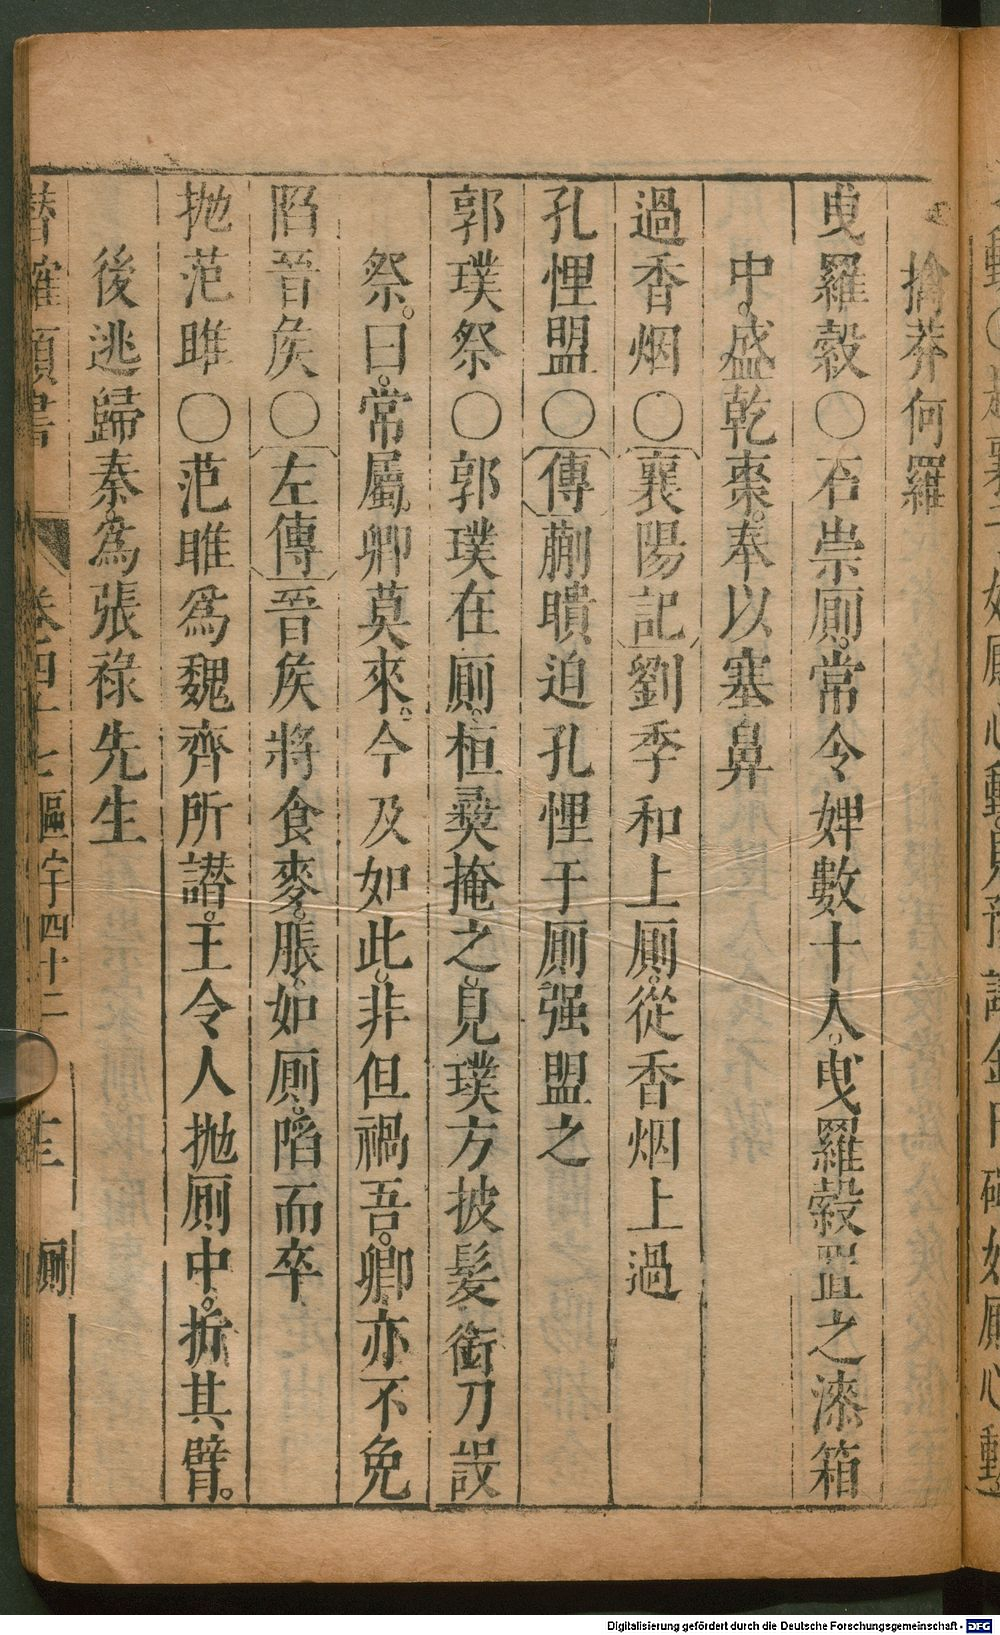 擒莽何羅
曳羅縠〇石崇厠。常令婢數十人。曳羅縠置之漆箱
中。盛乾棗。奉以塞鼻
過香烟〇襄陽記劉季和上厠。從香烟上過
孔悝盟〇傳蒯聵迫孔悝于厠强盟之
郭璞祭〇郭璞在厠。桓彝掩之。見璞方披髮銜刀設
祭。曰。常屬。卿莫來。今及如此。非但禍吾。卿亦不免
陷晉矦〇左傳晉矦將食麥。脹。如厠。陷而卒
抛范雎〇范雎爲魏齊所譖。王令人抛厠中。折其臂。
後逃歸秦。爲張祿先生
潛確類書 卷四十七 區宇四十二 厠